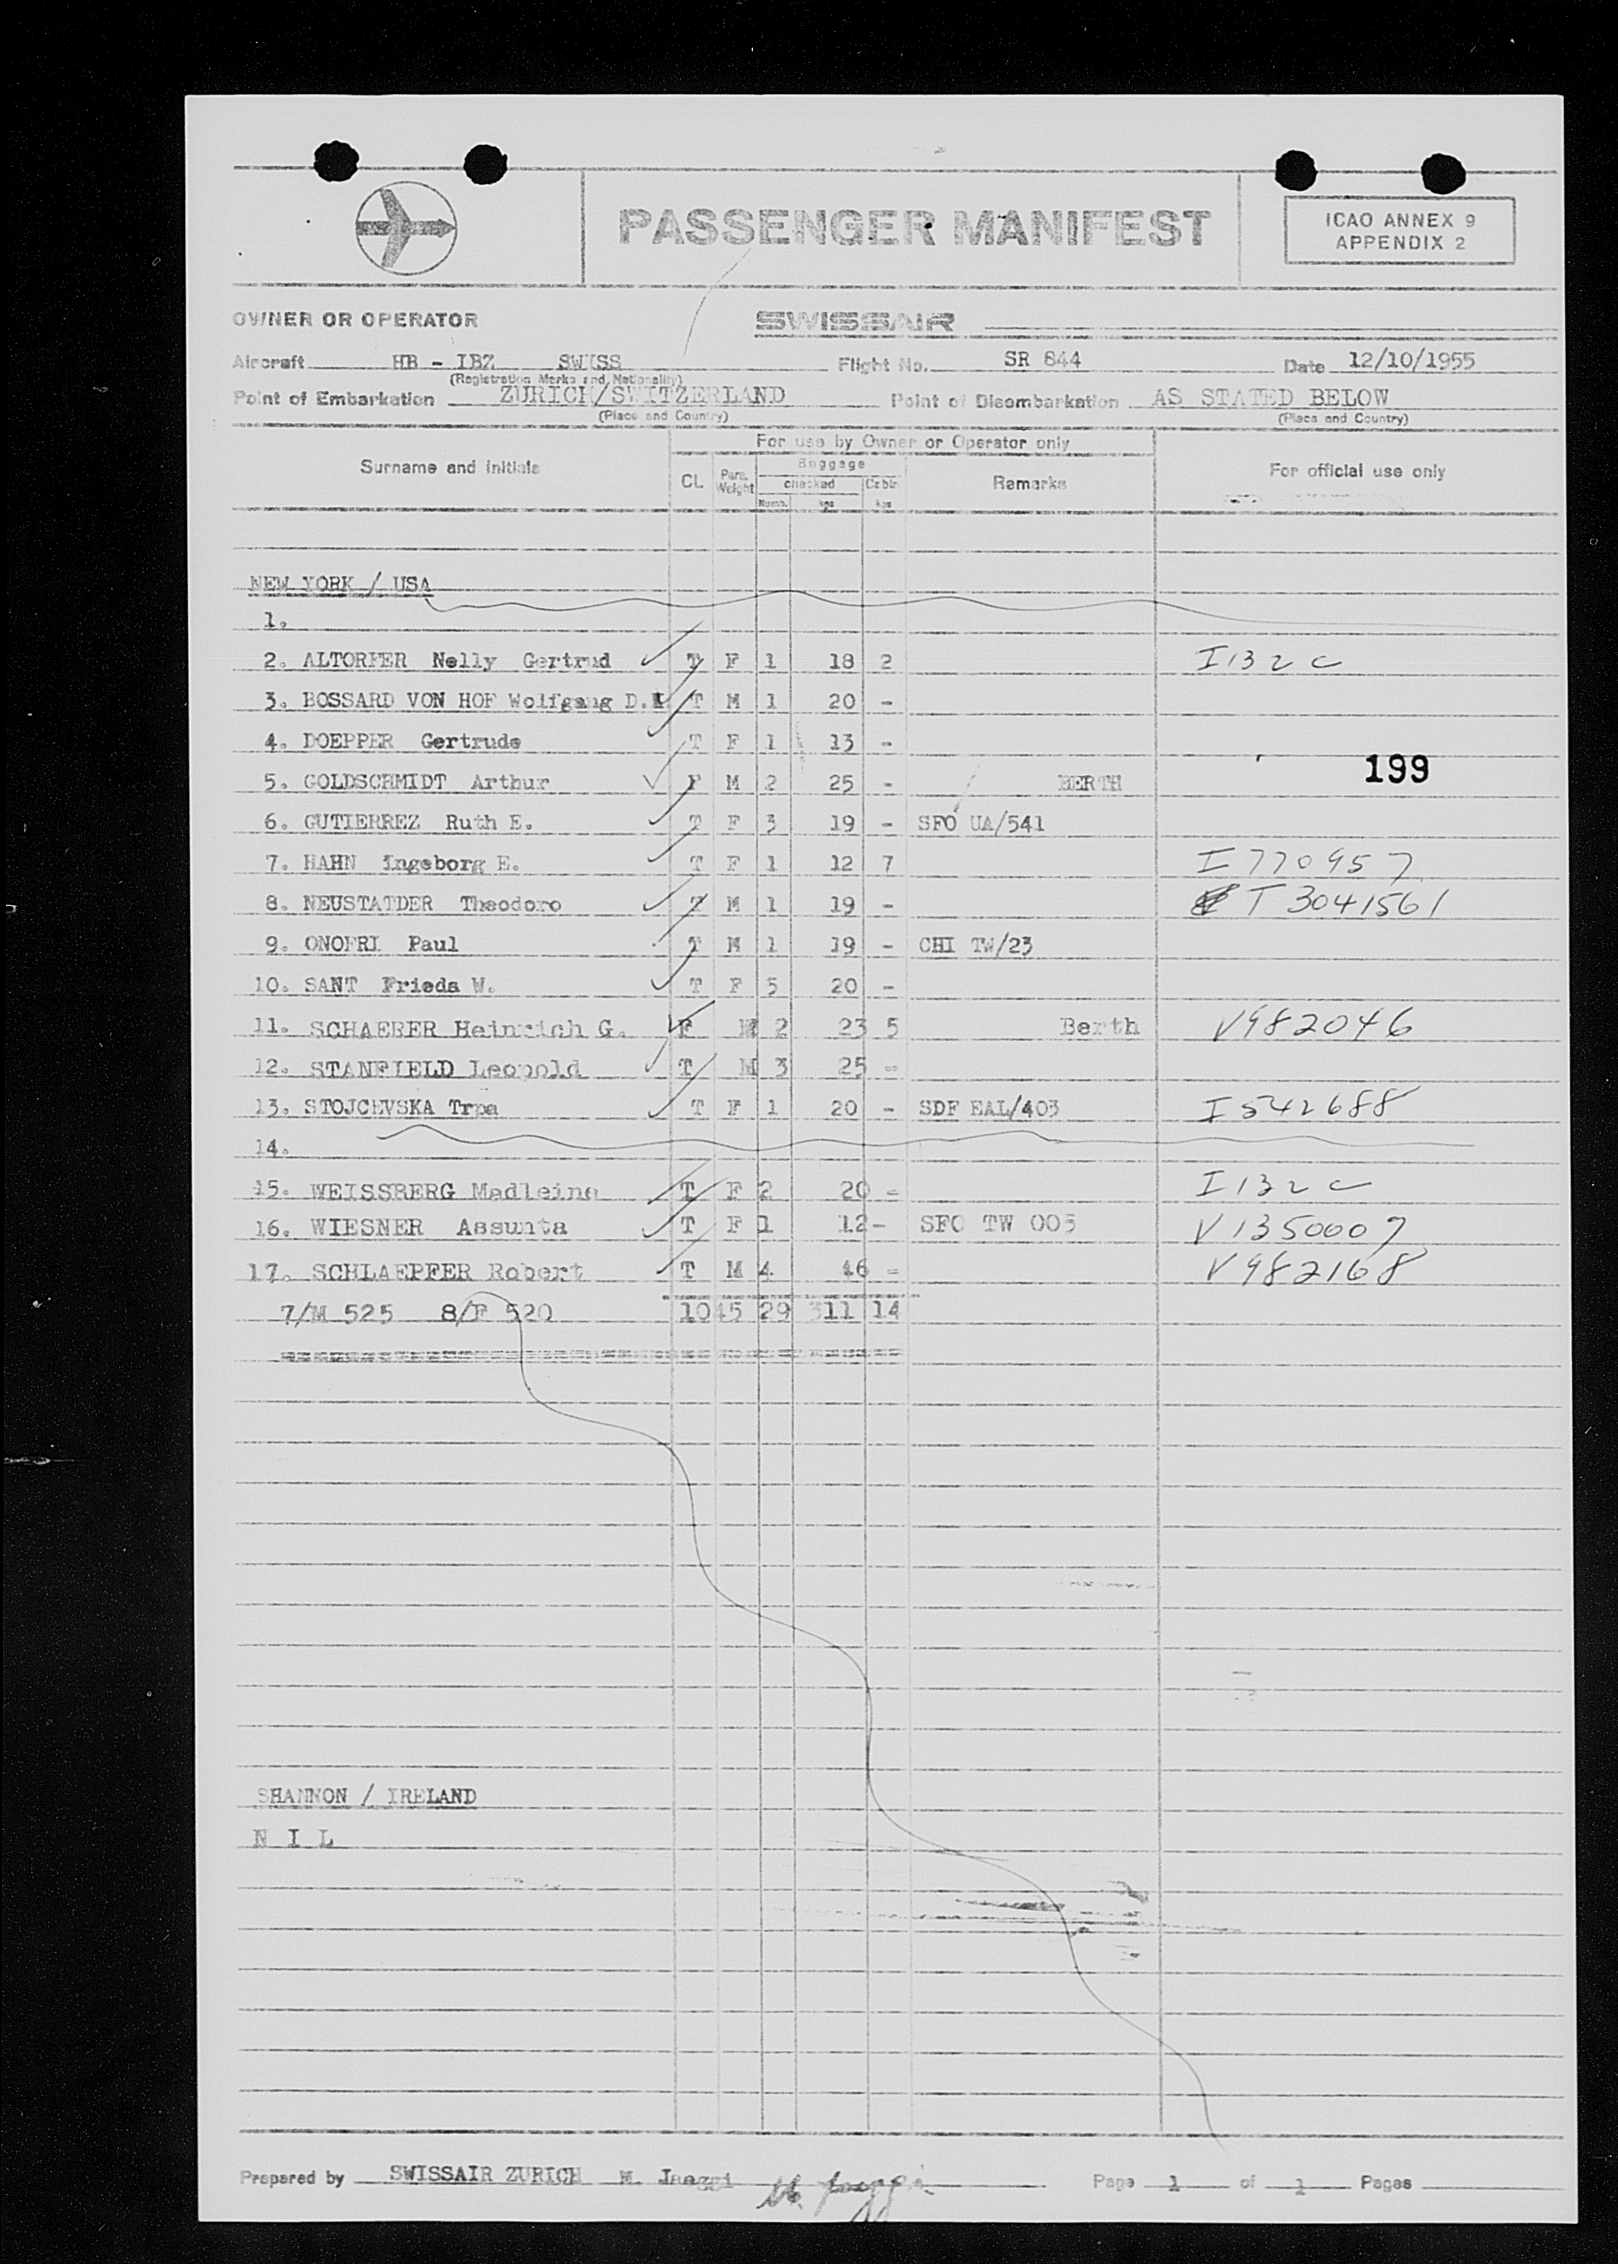 PASSENGER MANIFEST
ICAO ANNEX 9
APPENDIX 2
OWNER OR OPERATOR SWISSAIR
Aircraft HB - IBZ SWISS Flight No. SR 844 Date 12/10/1955
(Registration Marks and Nationality)
Point of Embarkation ZURICH/SWITZERLAND Point of Disembarkation AS STATED BELOW
(Place and Country) (Place and Country)
For use by Owner or Operator only
Surname and initials CL Pass. Weight Baggage checked Cabin Remarks For official use only
Numb. kgs kgs
NEW YORK / USA
1.
2. ALTORFER Nelly Gertrud T F 1 18 2 I 132 c
3. BOSSARD VON HOF Wolfgang D. T M 1 20 -
4. DOEPPER Gertrude T F 1 13 -
199
5. GOLDSCHMIDT Arthur F M 2 25 - BERTH
6. GUTIERREZ Ruth E. T F 3 19 - SFO UA/541
7. HAHN Ingeborg E. T F 1 12 7 I 770957
8. NEUSTATDER Theodoro T M 1 19 - T 3041561
9. ONOFRI Paul T M 1 19 - CHI TW/23
10. SANT Frieda W. T F 5 20 -
11. SCHAERER Heinrich G. F M 2 23 5 Berth V982046
12. STANFIELD Leopold T M 3 25 -
13. STOJCEVSKA Trpa T F 1 20 - SDF EAL/403 I 542688
14.
15. WEISSBERG Madleine T F 2 20 - I 132 c
16. WIESNER Assunta T F 1 12 - SFO TW 003 V 1350007
17. SCHLAEPFER Robert T M 4 46 - V 982168
7/M 525 8/F 520 1045 29 311 14
SHANNON / IRELAND
N I L
Prepared by SWISSAIR ZURICH M. Jaeggi M. Jaeggi. Page 1 of 1 Pages